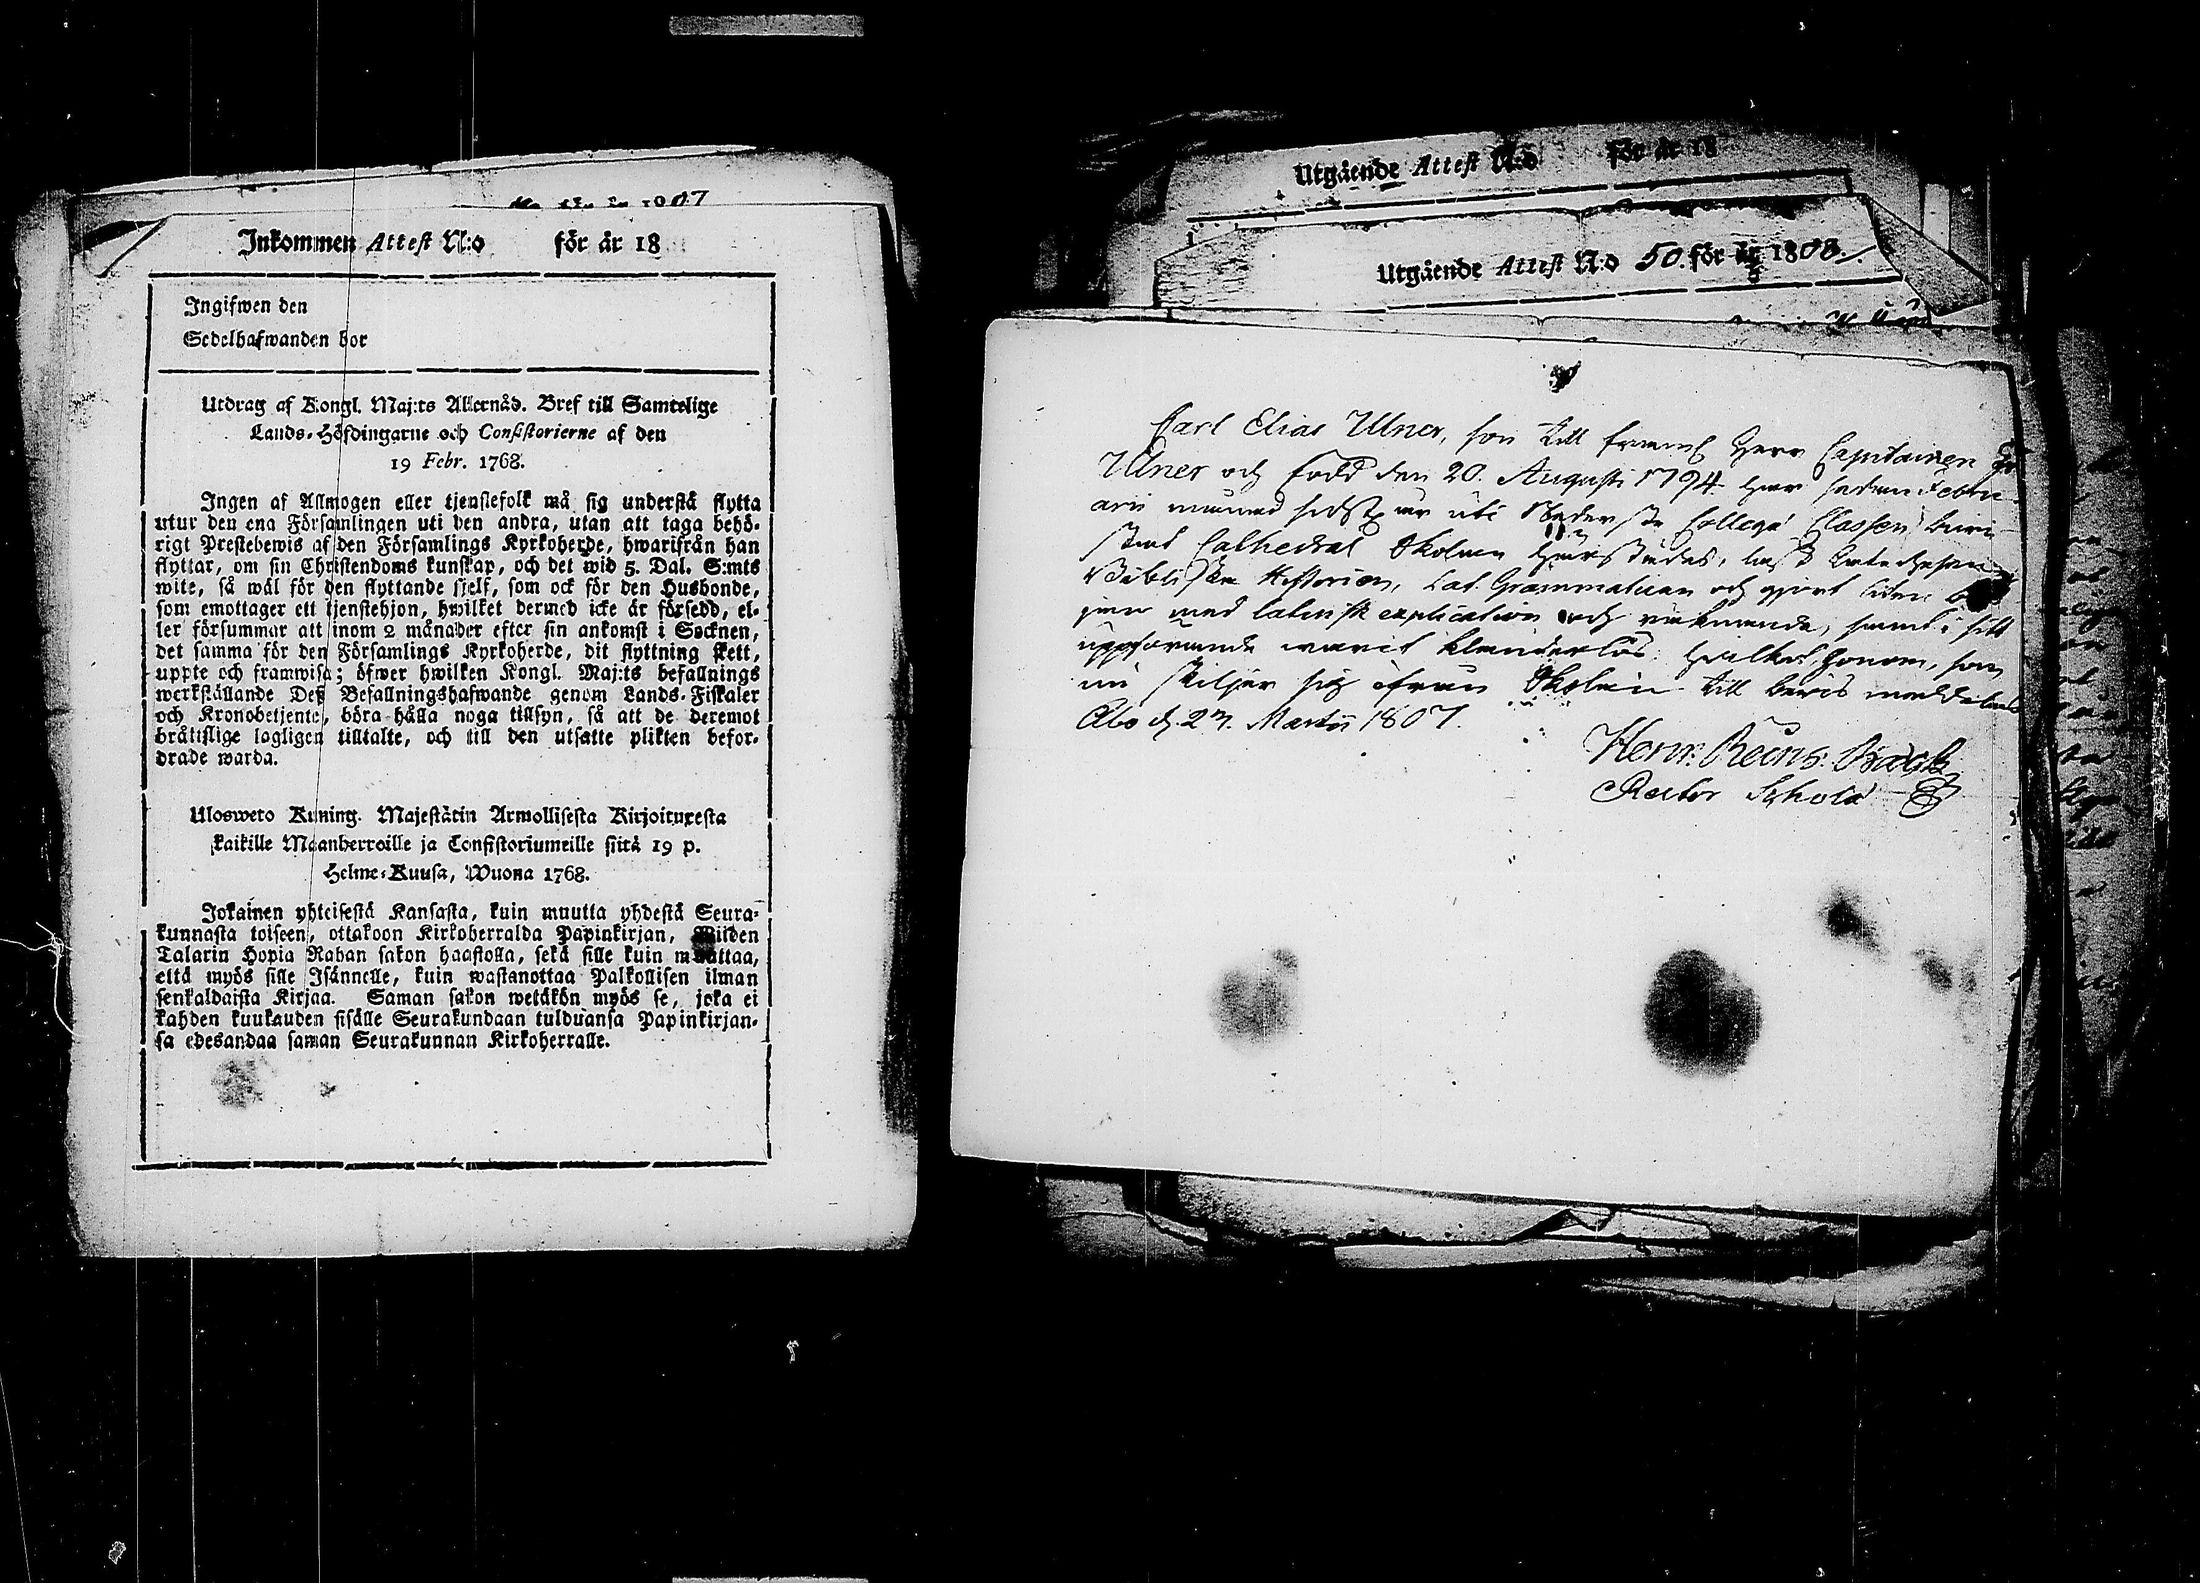 för år 1807
Inkommen Attest N:o för år 18
Ingifwen den
Sedelhafwanden bor
Utdrag af Kongl. Maj:ts Allernåd. Bref till Samtelige
Lands-Höfdingarne och Consistorierne af den
19 Febr. 1768.
Ingen af Allmogen eller tjenstefolk må sig understå flytta
utur den ena Församlingen uti den andra, utan att taga behö-
rigt Prestebewis af den Församlings Kyrkoherde, hwarifrån han
flyttar, om sin Christendoms kunskap, och det wid 5. Dal. S:mts
wite, så wäl för den flyttande sjelf, som ock för den Husbonde,
som emottager ett tjenstehjon, hwilket dermed icke är försedd, el-
ler försummar att inom 2 månader efter sin ankomst i Socknen,
det samma för den Församlings Kyrkoherde, dit flyttning skett,
uppte och framwisa; öfwer hwilken Kongl. Maj:ts befallnings
werkställande Deß Befallningshafwande genom Lands-Fiskaler
och Kronobetjente, böra hålla noga tillsyn, så att de deremot
bråttslige lagligen tilltalte, och till den utsatte plikten befor-
drade warda.
Ulosweto Kuning. Majestätin Armollisesta Kirjoituxesta
kaikille Maanherroille ja Consistoriumeille siitä 19 p.
Helme-Kuusa, Wuona 1768.
Jokainen yhteisestä Kansasta, kuin muutta yhdestä Seura-
kunnasta toiseen, ottakoon Kirkoherralda Papinkirjan, Wiiden
Talarin Hopia Rahan sakon haastolla, sekä sille kuin muuttaa,
että myös sille Isännelle, kuin wastanottaa Palkollisen ilman
senkaldaista Kirjaa. Saman sakon wetäkön myös se, joka ei
kahden kuukauden sisälle Seurakundaan tulduansa Papinkirjan-
sa edesandaa saman Seurakunnan Kirkoherralle.
Utgående Attest N:o för år 18
Utgående Attest N:o 50. för år 1808.
Carl Elias Ulner, son till framl. Herr Capitainen
Ulner och född den 20. Augusti 1794. har sedan Febru-
arii månad sidstl. år uti Nederste Collega Classen
Cathedral Skolan härstädes, läst Catechesen
Bibliska Historien, Lat. Grammatican och gjort liten
jan med latinsk explication och räknande, samt i sitt
uppförande warit klanderlös; hwilket honom, som
nu skiljer sig ifrån Skolan till bevis meddelas
Åbo d. 27. Martii 1807.
Herm. Reins. Back
Rector Scholæ